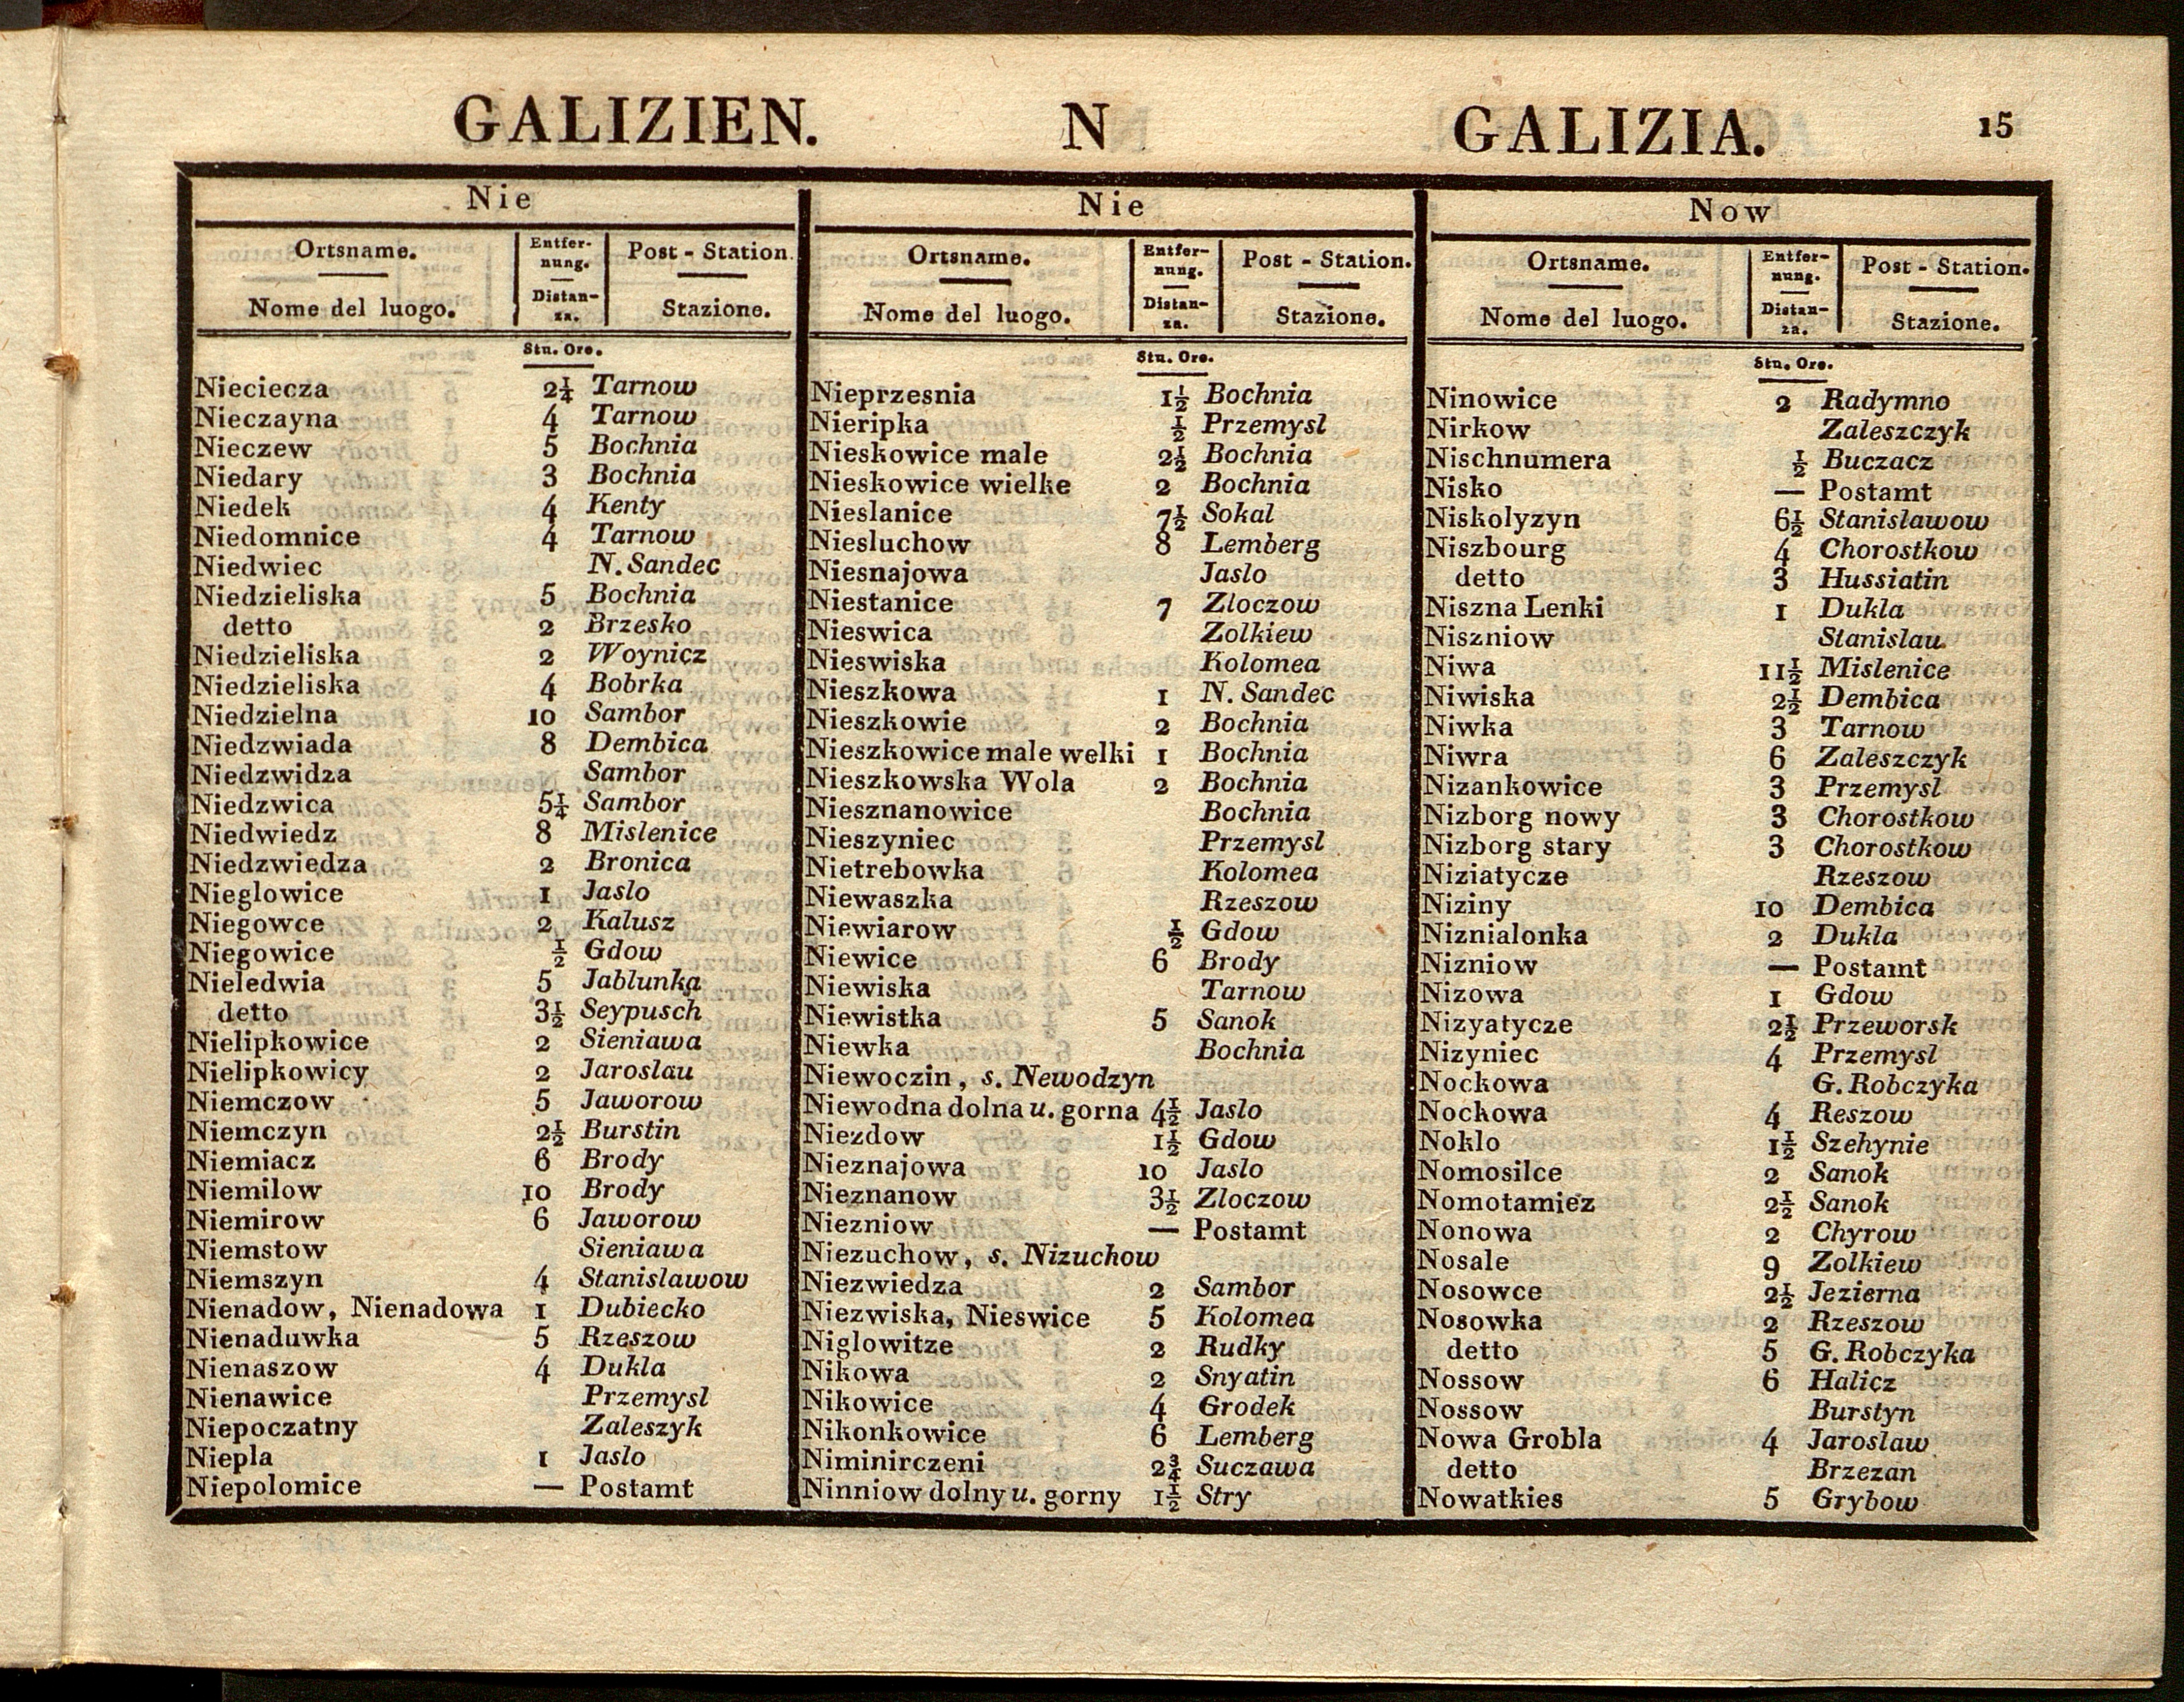 GALIZIEN. N GALIZIA. 15
Nie
Ortsname. Entfer-nung. Post - Station.
Nome del luogo. Distan-za. Stazione.
Stu. Ore.
Nieciecza 2¼ Tarnow
Nieczayna 4 Tarnow
Nieczew 5 Bochnia
Niedary 3 Bochnia
Niedek 4 Kenty
Niedomnice 4 Tarnow
Niedwiec N. Sandec
Niedzieliska 5 Bochnia
detto 2 Brzesko
Niedzieliska 2 Woynicz
Niedzieliska 4 Bobrka
Niedzielna 10 Sambor
Niedzwiada 8 Dembica
Niedzwidza Sambor
Niedzwica 5¼ Sambor
Niedwiedz 8 Mislenice
Niedzwiedza 2 Bronica
Nieglowice 1 Jaslo
Niegowce 2 Kalusz
Niegowice ½ Gdow
Nieledwia 5 Jablunka
detto 3½ Seypusch
Nielipkowice 2 Sieniawa
Nielipkowicy 2 Jaroslau
Niemczow 5 Jaworow
Niemczyn 2½ Burstin
Niemiacz 6 Brody
Niemilow 10 Brody
Niemirow 6 Jaworow
Niemstow Sieniawa
Niemszyn 4 Stanislawow
Nienadow, Nienadowa 1 Dubiecko
Nienaduwka 5 Rzeszow
Nienaszow 4 Dukla
Nienawice Przemysl
Niepoczatny Zaleszyk
Niepla 1 Jaslo
Niepolomice — Postamt
Nie
Ortsname. Entfer-nung. Post - Station.
Nome del luogo. Distan-za. Stazione.
Stu. Ore.
Nieprzesnia 1½ Bochnia
Nieripka ½ Przemysl
Nieskowice male 2½ Bochnia
Nieskowice wielke 2 Bochnia
Nieslanice 7½ Sokal
Niesluchow 8 Lemberg
Niesnajowa Jaslo
Niestanice 7 Zloczow
Nieswica Zolkiew
Nieswiska Kolomea
Nieszkowa 1 N. Sandec
Nieszkowie 2 Bochnia
Nieszkowice male welki 1 Bochnia
Nieszkowska Wola 2 Bochnia
Niesznanowice Bochnia
Nieszyniec Przemysl
Nietrebowka Kolomea
Niewaszka Rzeszow
Niewiarow ½ Gdow
Niewice 6 Brody
Niewiska Tarnow
Niewistka 5 Sanok
Niewka Bochnia
Niewoczin, s. Newodzyn
Niewodna dolna u. gorna 4½ Jaslo
Niezdow 1½ Gdow
Nieznajowa 10 Jaslo
Nieznanow 3½ Zloczow
Niezniow — Postamt
Niezuchow, s. Nizuchow
Niezwiedza 2 Sambor
Niezwiska, Nieswice 5 Kolomea
Niglowitze 2 Rudky
Nikowa 2 Snyatin
Nikowice 4 Grodek
Nikonkowice 6 Lemberg
Niminirczeni 2¾ Suczawa
Ninniow dolny u. gorny 1½ Stry
Now
Ortsname. Entfer-nung. Post - Station.
Nome del luogo. Distan-za. Stazione.
Stu. Ore.
Ninowice 2 Radymno
Nirkow Zaleszczyk
Nischnumera ½ Buczacz
Nisko — Postamt
Niskolyzyn 6½ Stanislawow
Niszbourg 4 Chorostkow
detto 3 Hussiatin
Niszna Lenki 1 Dukla
Niszniow Stanislau
Niwa 11½ Mislenice
Niwiska 2½ Dembica
Niwka 3 Tarnow
Niwra 6 Zaleszczyk
Nizankowice 3 Przemysl
Nizborg nowy 3 Chorostkow
Nizborg stary 3 Chorostkow
Niziatycze Rzeszow
Niziny 10 Dembica
Niznialonka 2 Dukla
Nizniow — Postamt
Nizowa 1 Gdow
Nizyatycze 2½ Przeworsk
Nizyniec 4 Przemysl
Nockowa G. Robczyka
Nockowa 4 Reszow
Noklo 1½ Szehynie
Nomosilce 2 Sanok
Nomotamiez 2½ Sanok
Nonowa 2 Chyrow
Nosale 9 Zolkiew
Nosowce 2½ Jezierna
Nosowka 2 Rzeszow
detto 5 G. Robczyka
Nossow 6 Halicz
Nossow Burstyn
Nowa Grobla 4 Jaroslaw
detto Brzezan
Nowatkies 5 Grybow